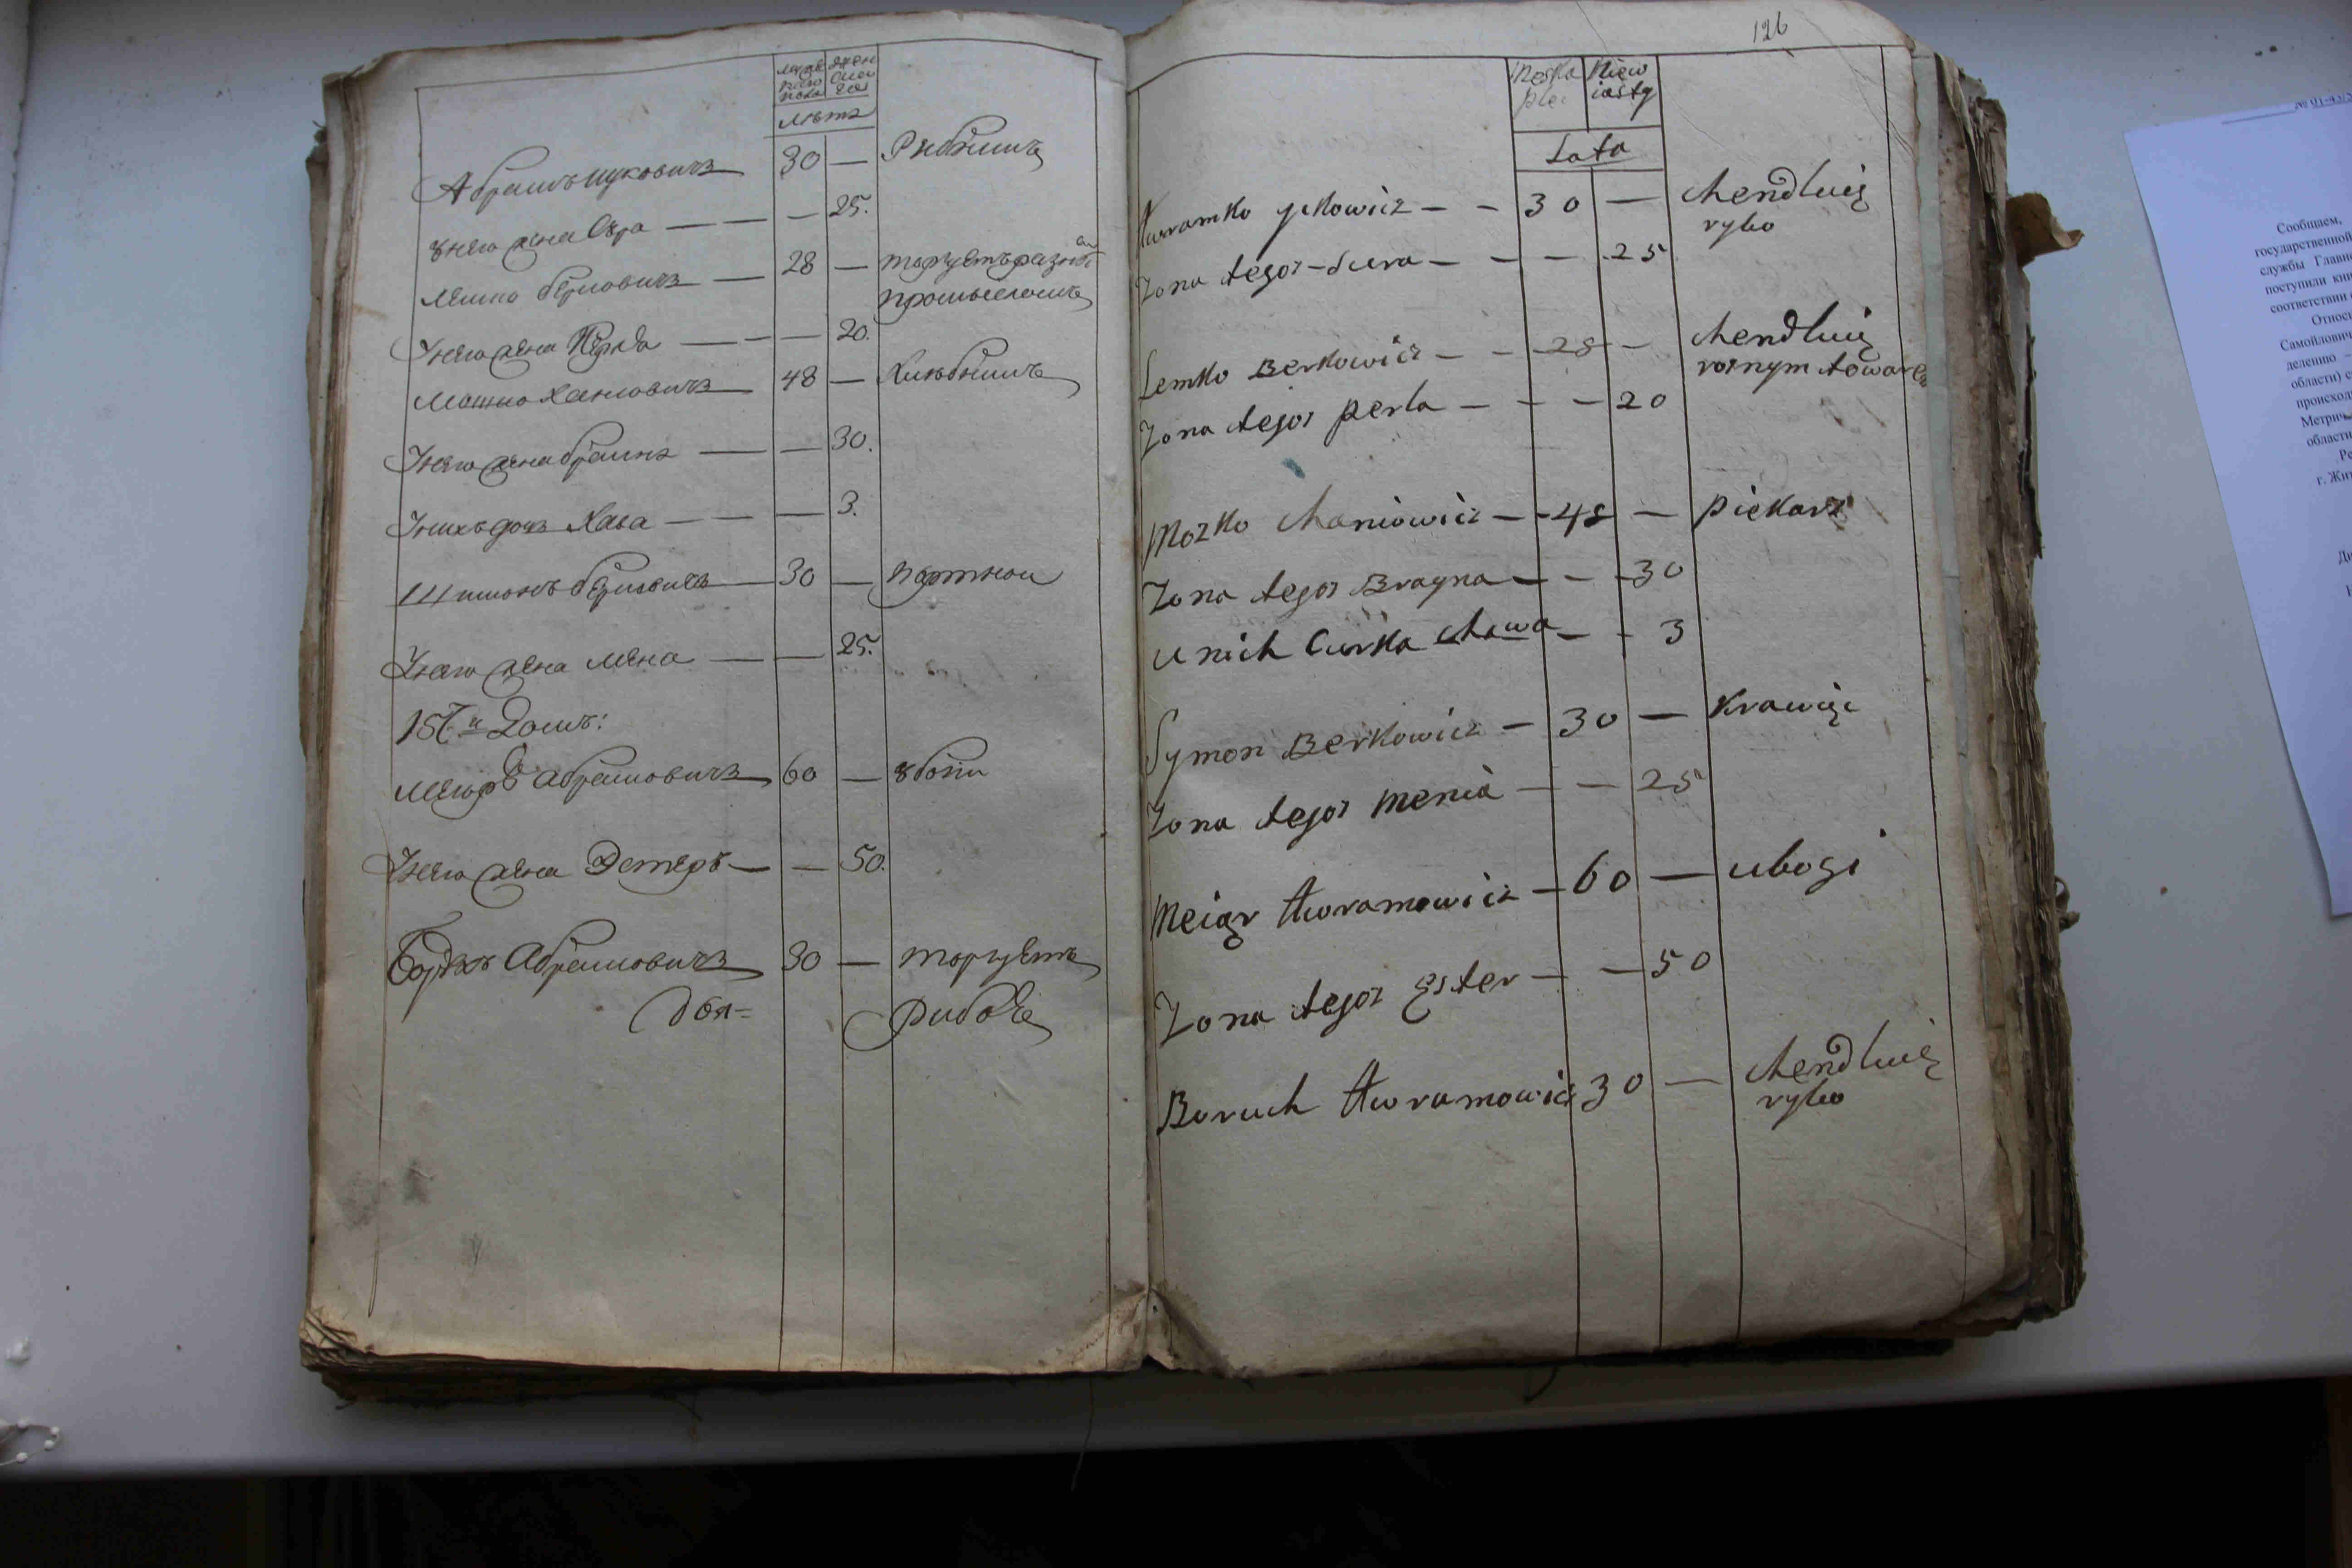 лѣта
Абрамъ Ицковичъ — 30 —
у него жена Сура — — — 25.
Лемко Берковичъ — 28 — торгуетъ разнымъ
промысломъ
У него жена Перла — — — 20.
Мошко Хаимовичъ 48 — Хлѣбникъ
У него жена Браина — — 30.
У нихъ дочь Хава — — — 3.
Шимонъ Берковичъ — 30 — портной
У него жена Мена — — 25.
157й Домъ:
Меюръ Абрамовичъ 60 — убогій
У него жена Эстеръ — — 50.
Борухъ Абрамовичъ 30 — торгуетъ
рибою
126
Męska Niew
płci iasty
Lata
Awramko Ickowicz — — 30 — chendluię
rybo
Zona tegoz — Sura — — — 25
Lemko Berkowicz — — 28 — chendluię
roznym towarem
Zona tegoz perla — — — 20
Mozko Chaniowicz — 48 — piekarz
Zona tegoz Brayna — — 30
U nich Curka Chawa — — 3
Symon Berkowicz — 30 — Krawięc
Zona tegoz Menia — — 25
Meiar Awramowicz — 60 — ubogi
Zona tegoz Ester — — 50
Boruch Awramowicz 30 — chendluię
rybo
№ 01-43/
Сообщаем,
государственной
службы
поступили
соответствии
Самойлович
делению –
области)
области
г.